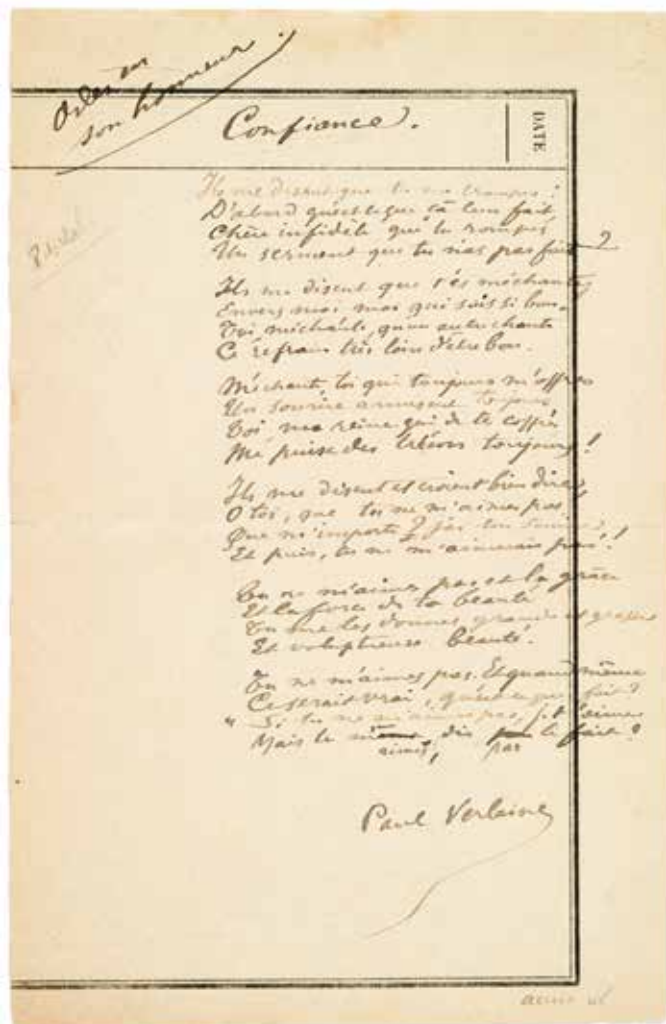 Odes en
son honneur.
Confiance.
DATE
Ils me disent que tu me trompes :
D'abord qu'est-ce que ça leur fait,
Chère infidèle que tu rompes
Un serment que tu n'as pas fait ?
Ils me disent que t'es méchante
Envers moi, moi qui suis si bon.
Toi méchante, qu'un autre chante
Ce refrain très loin d'être bon.
Méchante, toi qui toujours m'offres
Un sourire amusant toujours
Toi, ma reine qui de tes coffres
Me puise des trésors toujours !
Ils me disent et croient bien dire,
O toi, que tu ne m'aimes pas,
Que m'importe ? j'ai ton sourire,
Et puis, tu ne m'aimerais pas !
Tu ne m'aimes pas et la grâce
Et la force de ta beauté
Tu me les donnes, grande et grasse
Et voluptueuse beauté.
Tu ne m'aimes pas. Et quand même
Ce serait vrai, qu'est-ce que fait ?
" Si tu ne m'aimes pas, je t'aime
Mais le dis le fait ?
aimes, par
Paul Verlaine